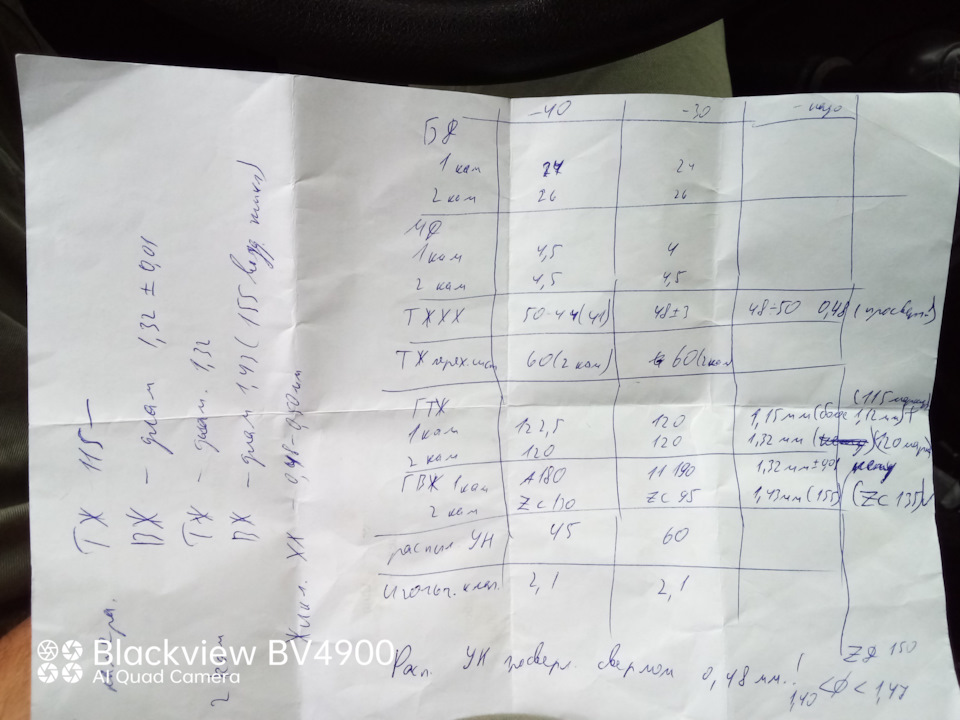 -40 -30 - надо
БД
1 кам 24 24
2 кам 26 26
МД
1 кам 4,5 4
2 кам 4,5 4,5
ТЖХХ 50-44(41) 48±3 48÷50 0,48
ТЖ 60(2 кам) 60(2 кам
(115
ГТЖ 1,15 мм 1,12 мм)
1 кам 122,5 120 1,32 мм
2 кам 120 120 1,32 мм ±
ГВЖ 1 кам А180 11 190
2 кам ZC 130 ZC 95 1,43 мм (155) (ZC 135)
распыл УН 45 60
игольч. клап. 2,1 2,1
ZD 150
Расп. УН сверлом 0,48 мм.!
1,40 < ф < 1,47
ТЖ 115
ВЖ - диам 1,32 ± 0,01
ТЖ - диам. 1,32
ВЖ - диам 1,43 (155
2 кам
Жикл. ХХ -
Blackview BV4900
AI Quad Camera